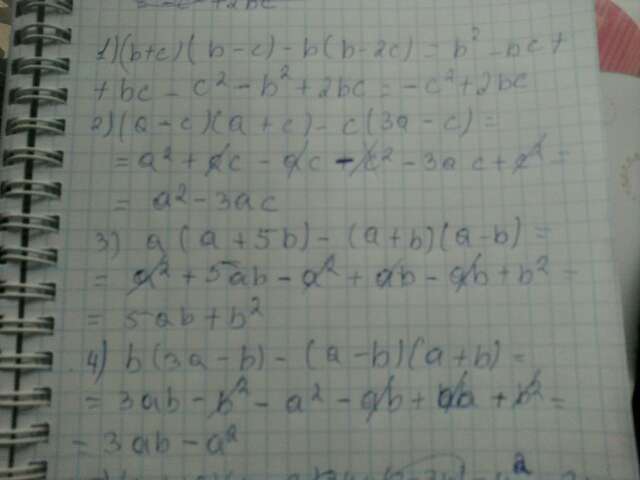 1)(b+c)(b-c)-b(b-2c)=b²-bc+
+bc-c²-b²+2bc=-c²+2bc
2)(a-c)(a+c)-c(3a-c)=
=a²+ac-ac-c²-3ac+c²=
=a²-3ac
3) a(a+5b)-(a+b)(a-b)=
=a²+5ab-a²+ab-ab+b²=
=5ab+b²
4) b(3a-b)-(a-b)(a+b)=
=3ab-b²-a²-ab+ba+b²=
=3ab-a²